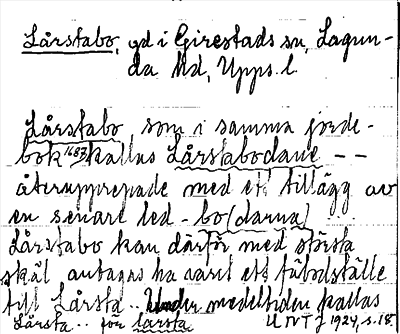 Lårstabo, gd i Girestads sn, Lagun-
da hd, Upps. l.
Lårstabo, som i samma jorde-
bok 1687 kallas Lårstabodane --
återupprepade med ett tillägg av
en senare led -bo(danna)
Lårstabo kan därför med största
skäl antagas ha varit ett fäbodställe
till Lårsta.. Under medeltiden kallas
Lårsta.. för larsta UNT 1924, s.18.